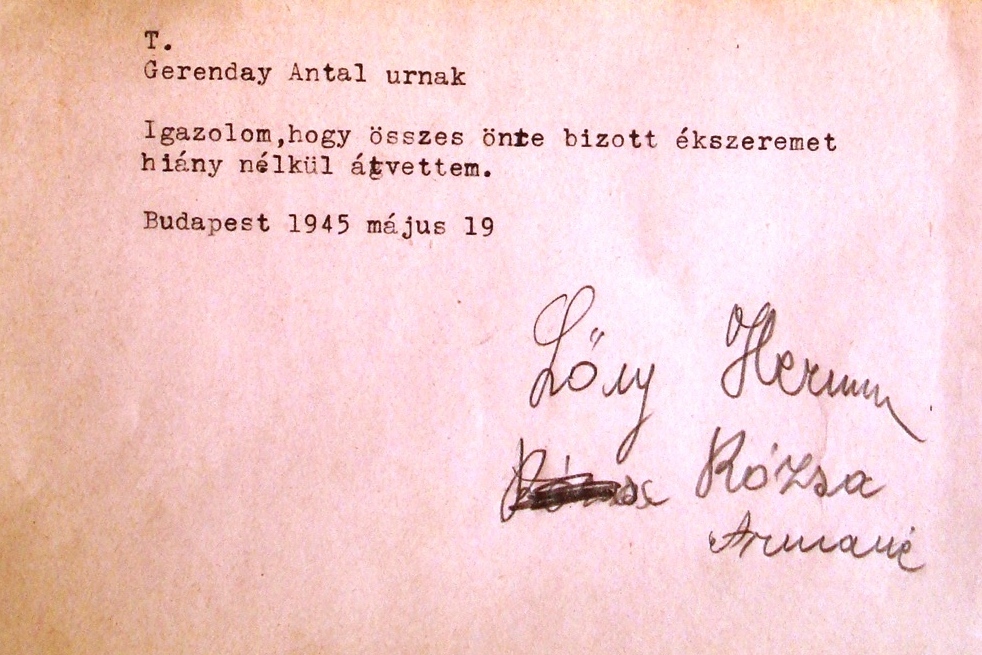 T.
Gerenday Antal urnak
Igazolom,hogy összes önte bizott ékszeremet
hiány nélkül átvettem.
Budapest 1945 május 19
Rózsa
Armané